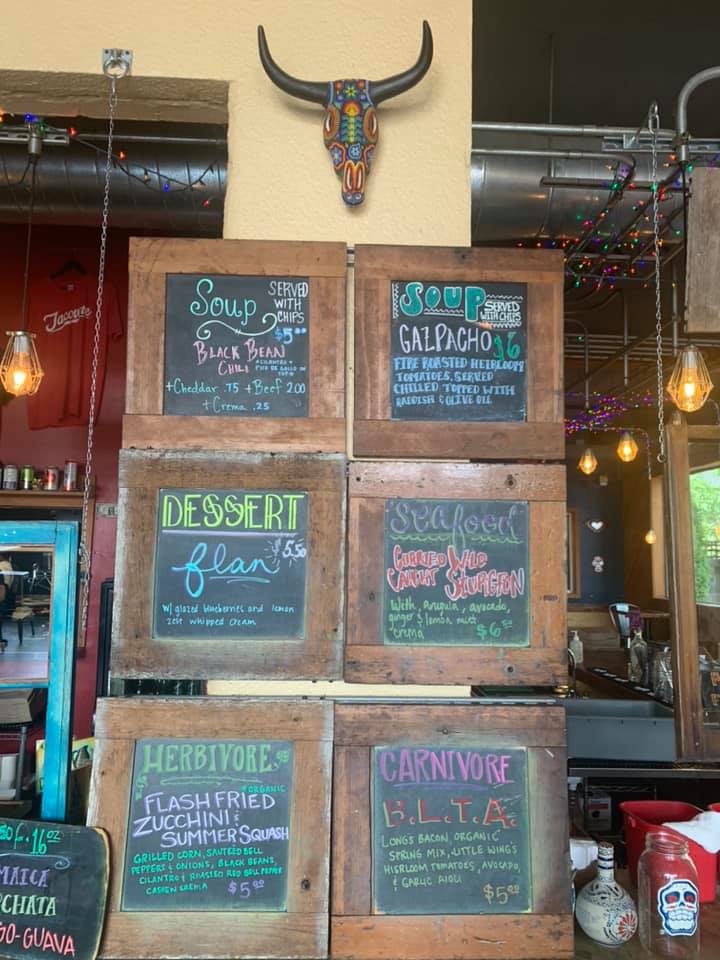 Tacovore
Soup
SERVED
WITH
CHIPS
$5.00
BLACK BEAN
CHILI
+ CILANTRO +
PICO DE GALLO ON
TOP
+Cheddar .75 +Beef 2.00
+Crema .25
SOUP
SERVED
WITH CHIPS
GAZPACHO $6
FIRE ROASTED HEIRLOOM
TOMATOES, SERVED
CHILLED TOPPED WITH
RADDISH & OLIVE OIL
DESSERT
flan
$5.50
w/ glazed blueberries and lemon
zest whipped cream
Seafood
CURRIED WILD
CAUGHT STURGEON
With, Arugula, avocado,
ginger & lemon mint
crema
$6
HERBIVORE
*ORGANIC
FLASH FRIED
ZUCCHINI &
SUMMER SQUASH
GRILLED CORN, SAUTEED BELL
PEPPERS & ONIONS, BLACK BEANS,
CILANTRO & ROASTED RED BELL PEPPER
CASHEW CREMA
$5.00
CARNIVORE
B.L.T.A.
LONG'S BACON, ORGANIC
SPRING MIX, LITTLE WING'S
HEIRLOOM TOMATOES, AVOCADO,
& GARLIC AIOLI
$5.00
16 OZ
MAICA
RCHATA
GO-GUAVA